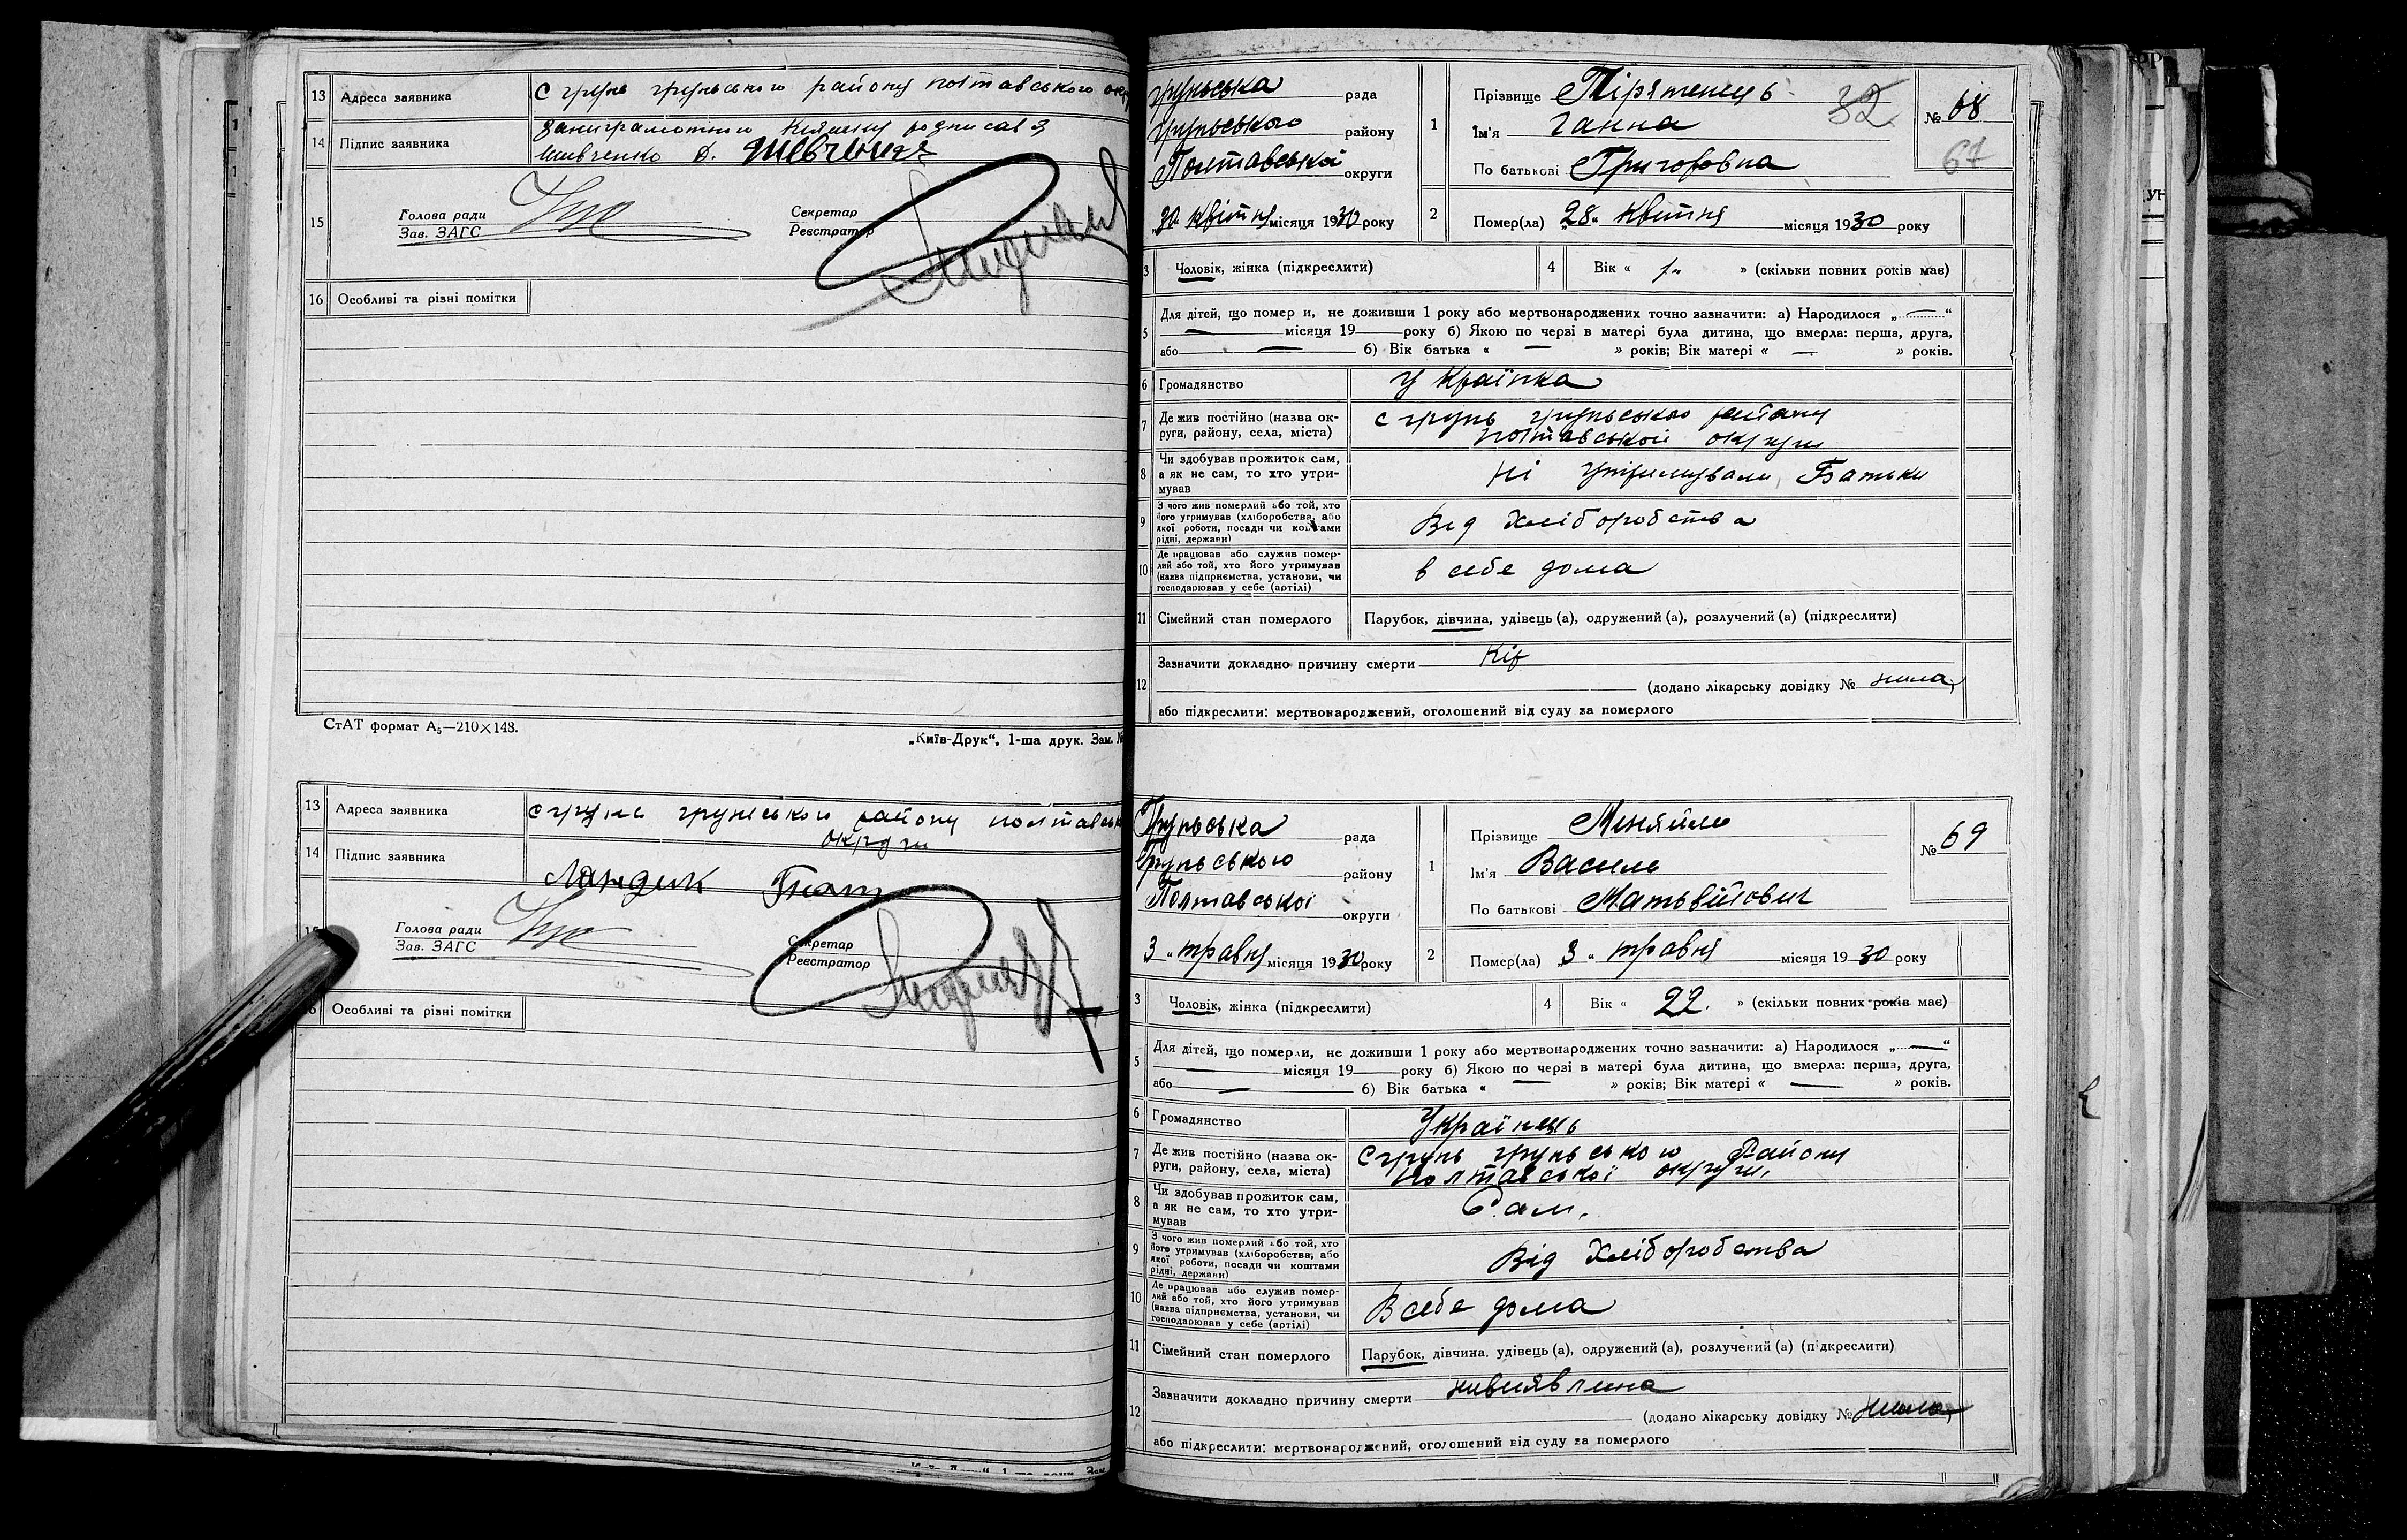 13 Адреса заявника с грунь грунського району полтавського окр
14 Підпис заявника
Шевченко Д. Шевченко
15 Голова ради
Зав. ЗАГС
Секретар
Реєстратор
16 Особливі та різні помітки
СтАТ формат А₅—210×148.
„Київ-Друк“, 1-ша друк. Зам. №
13 Адреса заявника с грунь грунського району полтавськ
округи
14 Підпис заявника
Голова ради
Зав. ЗАГС
Секретар
Реєстратор
Особливі та різні помітки
грунська рада
грунського району
Полтавської округи
30 „ квітня місяця 1930 року
1 Прізвище Пірятенець
Ім'я Ганна
По батькові Григоровна
32
№ 68
67
2 Помер(ла) 28 „ квітня місяця 1930 року
3 Чоловік, жінка (підкреслити)
4 Вік « 1 „ » (скільки повних років має)
5 Для дітей, що померли, не доживши 1 року або мертвонароджених точно зазначити: а) Народилося „ — “
— місяця 19 — року б) Якою по черзі в матері була дитина, що вмерла: перша, друга,
або — б) Вік батька « — » років; Вік матері « — » років.
6 Громадянство Українка
7 Де жив постійно (назва округи, району, села, міста) с грунь грунського району
полтавської округи
8 Чи здобував прожиток сам, а як не сам, то хто утримував ні утримували Батьки
9 З чого жив померлий або той, хто його утримував (хліборобства, або якої роботи, посади чи коштами рідні, держави) Від Хліборобства
10 Де працював або служив померлий або той, хто його утримував (назва підприємства, установи, чи господарював у себе (артілі) в себе дома
11 Сімейний стан померлого Парубок, дівчина, удівець (а), одружений (а), розлучений (а) (підкреслити)
12 Зазначити докладно причину смерти Кір
(додано лікарську довідку № нима)
або підкреслити: мертвонароджений, оголошений від суду за померлого
Грунська рада
Грунського району
Полтавської округи
3 „ травня місяця 1930 року
1 Прізвище Меняйло
Ім'я Василь
По батькові Матьвійович
№ 69
2 Помер(ла) 3 „ травня місяця 1930 року
3 Чоловік, жінка (підкреслити)
4 Вік « 22. » (скільки повних років має)
5 Для дітей, що померли, не доживши 1 року або мертвонароджених точно зазначити: а) Народилося „ — “
— місяця 19 — року б) Якою по черзі в матері була дитина, що вмерла: перша, друга,
або — б) Вік батька « — » років; Вік матері « — » років.
6 Громадянство Українець
7 Де жив постійно (назва округи, району, села, міста) с грунь грунського Району
полтавської округи.
8 Чи здобував прожиток сам, а як не сам, то хто утримував Сам.
9 З чого жив померлий або той, хто його утримував (хліборобства, або якої роботи, посади чи коштами рідні, держави) Від Хліборобства
10 Де працював або служив померлий або той, хто його утримував (назва підприємства, установи, чи господарював у себе (артілі) В себе дома
11 Сімейний стан померлого Парубок, дівчина, удівець (а), одружений (а), розлучений (а) (підкреслити)
12 Зазначити докладно причину смерти нивиявлина
(додано лікарську довідку № нима)
або підкреслити: мертвонароджений, оголошений від суду за померлого